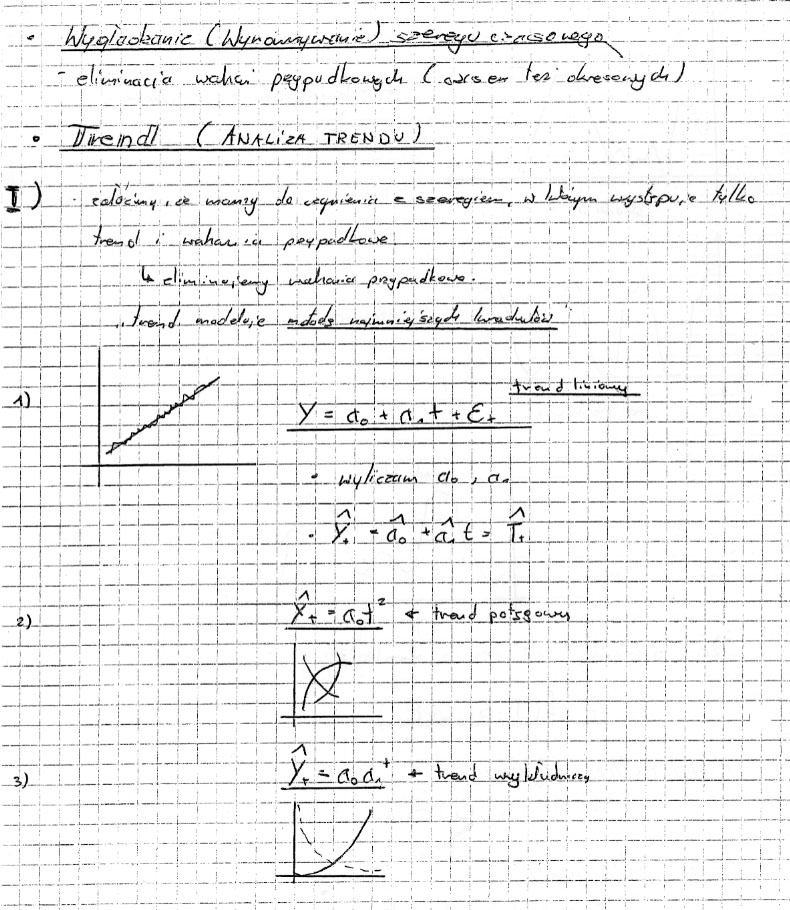 • Wygładzanie (Wyrównywanie) szeregu czasowego
- eliminacja wahań przypadkowych (czasem też okresowych)
• Trend (ANALIZA TRENDU)
I) · załóżmy, że mamy do czynienia z szeregiem, w którym występuje tylko
trend i wahania przypadkowe
↳ eliminujemy wahania przypadkowe.
„trend modeluje metodę najmniejszych kwadratów"
trend liniowy
1) Y = a₀ + a₁t + εₜ
• wyliczam a₀, a₁
· Ŷₜ = â₀ + â₁t = T̂ₜ
2) Ŷₜ = a₀t² ← trend potęgowy
3) Ŷₜ = a₀a₁ᵗ ← trend wykładniczy